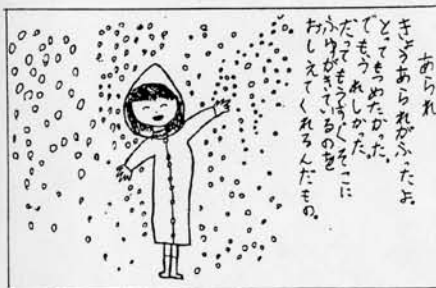 あられ
きょうあられがふったよ。
とってもつめたかった。
でもうれしかった。
だってもうすぐそこに
ふゆがきているのを
おしえてくれるんだもの。